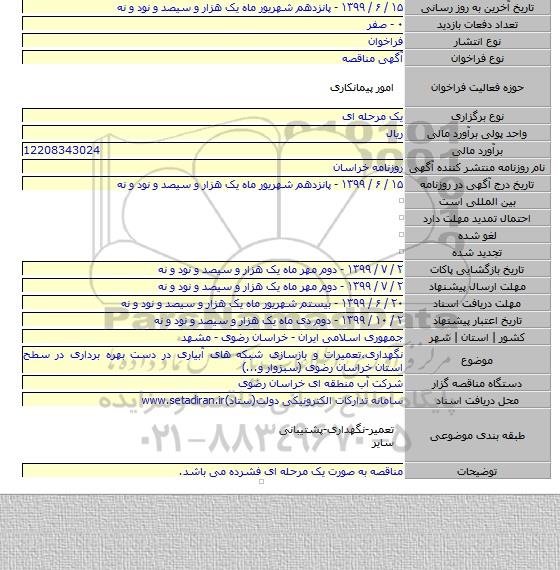 تاریخ آخرین به روز رسانی ۱۵ / ۶ / ۱۳۹۹ - پانزدهم شهریور ماه یک هزار و سیصد و نود و نه
تعداد دفعات بازدید ۰ - صفر
نوع انتشار فراخوان
نوع فراخوان آگهی مناقصه
حوزه فعالیت فراخوان امور پیمانکاری
نوع برگزاری یک مرحله ای
واحد پولی برآورد مالی ریال
برآورد مالی 12208343024
نام روزنامه منتشر کننده آگهی روزنامه خراسان
تاریخ درج آگهی در روزنامه ۱۵ / ۶ / ۱۳۹۹ - پانزدهم شهریور ماه یک هزار و سیصد و نود و نه
بین المللی است
احتمال تمدید مهلت دارد
لغو شده
تجدید شده
تاریخ بازگشایی پاکات ۲ / ۷ / ۱۳۹۹ - دوم مهر ماه یک هزار و سیصد و نود و نه
مهلت ارسال پیشنهاد ۲ / ۷ / ۱۳۹۹ - دوم مهر ماه یک هزار و سیصد و نود و نه
مهلت دریافت اسناد ۲۰ / ۶ / ۱۳۹۹ - بیستم شهریور ماه یک هزار و سیصد و نود و نه
تاریخ اعتبار پیشنهاد ۲ / ۱۰ / ۱۳۹۹ - دوم دی ماه یک هزار و سیصد و نود و نه
کشور | استان | شهر جمهوری اسلامی ایران - خراسان رضوی - مشهد
موضوع نگهداری،تعمیرات و بازسازی شبکه های آبیاری در دست بهره برداری در سطح
استان خراسان رضوی (سبزوار و...)
دستگاه مناقصه گزار شرکت آب منطقه ای خراسان رضوی
محل دریافت اسناد سامانه تدارکات الکترونیکی دولت(ستاد)www.setadiran.ir
طبقه بندی موضوعی تعمیر-نگهداری-پشتیبانی
سایر
توضیحات مناقصه به صورت یک مرحله ای فشرده می باشد.
۰۲۱-۸۸۳۴۹۶۷۰-۵